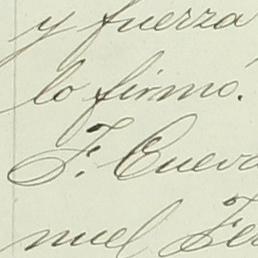 y fuerza
lo firmó.
F. Cueva
nuel Fer